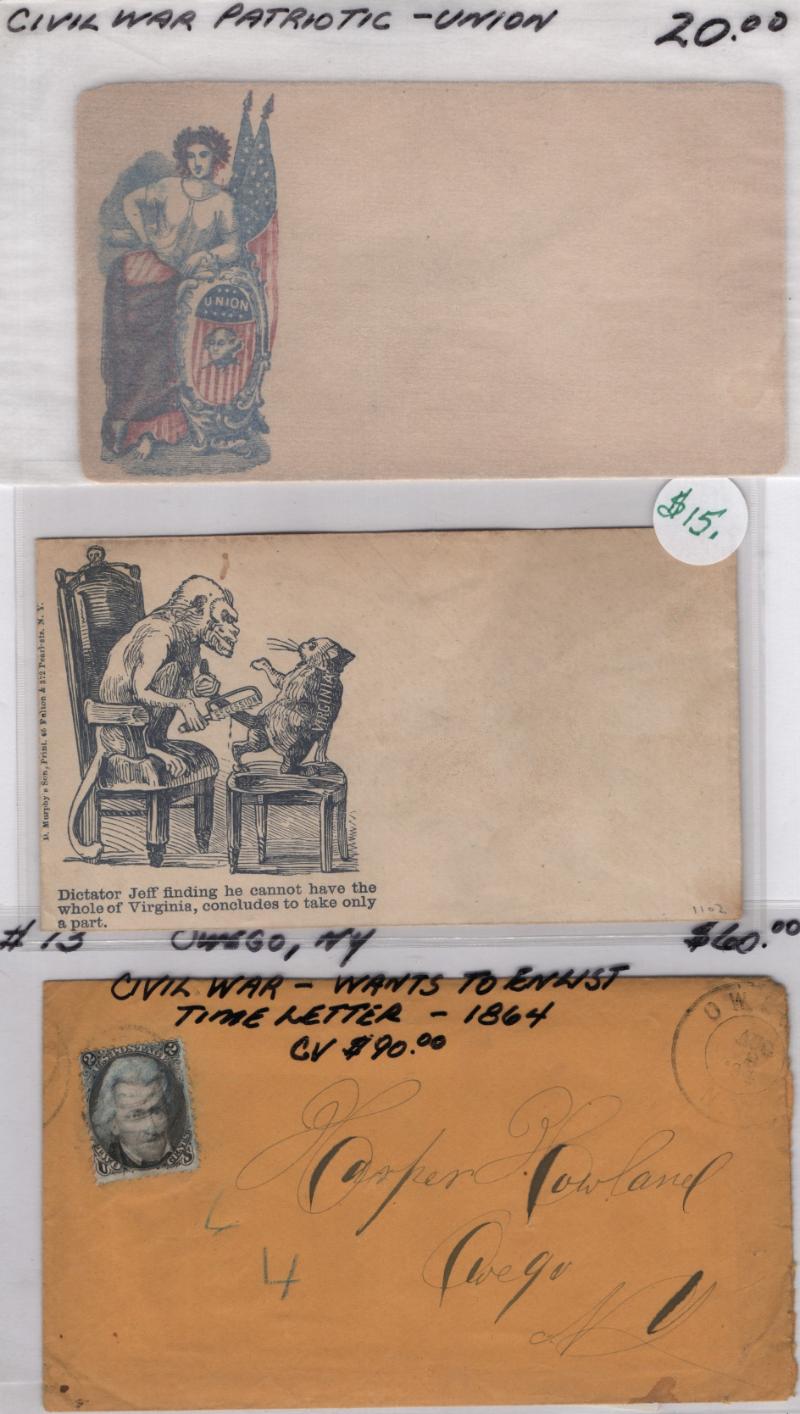 CIVIL WAR PATRIOTIC - UNION 20.00
UNION
$15.
D. Murphy's Son, Print. 65 Fulton & 372 Pearl-sts. N. Y.
VIRGINIA
Dictator Jeff finding he cannot have the
whole of Virginia, concludes to take only
a part.
1102
#73 OWEGO, NY $60.00
CIVIL WAR - WANTS TO ENLIST
TIME LETTER - 1864
CV $90.00
OW
2 2
U S
TWO CENTS
Harper Howland
Owego
NY
4